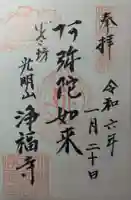 奉拝
令和六年
一月二十日
阿弥陀如来
光明山
浄福寺